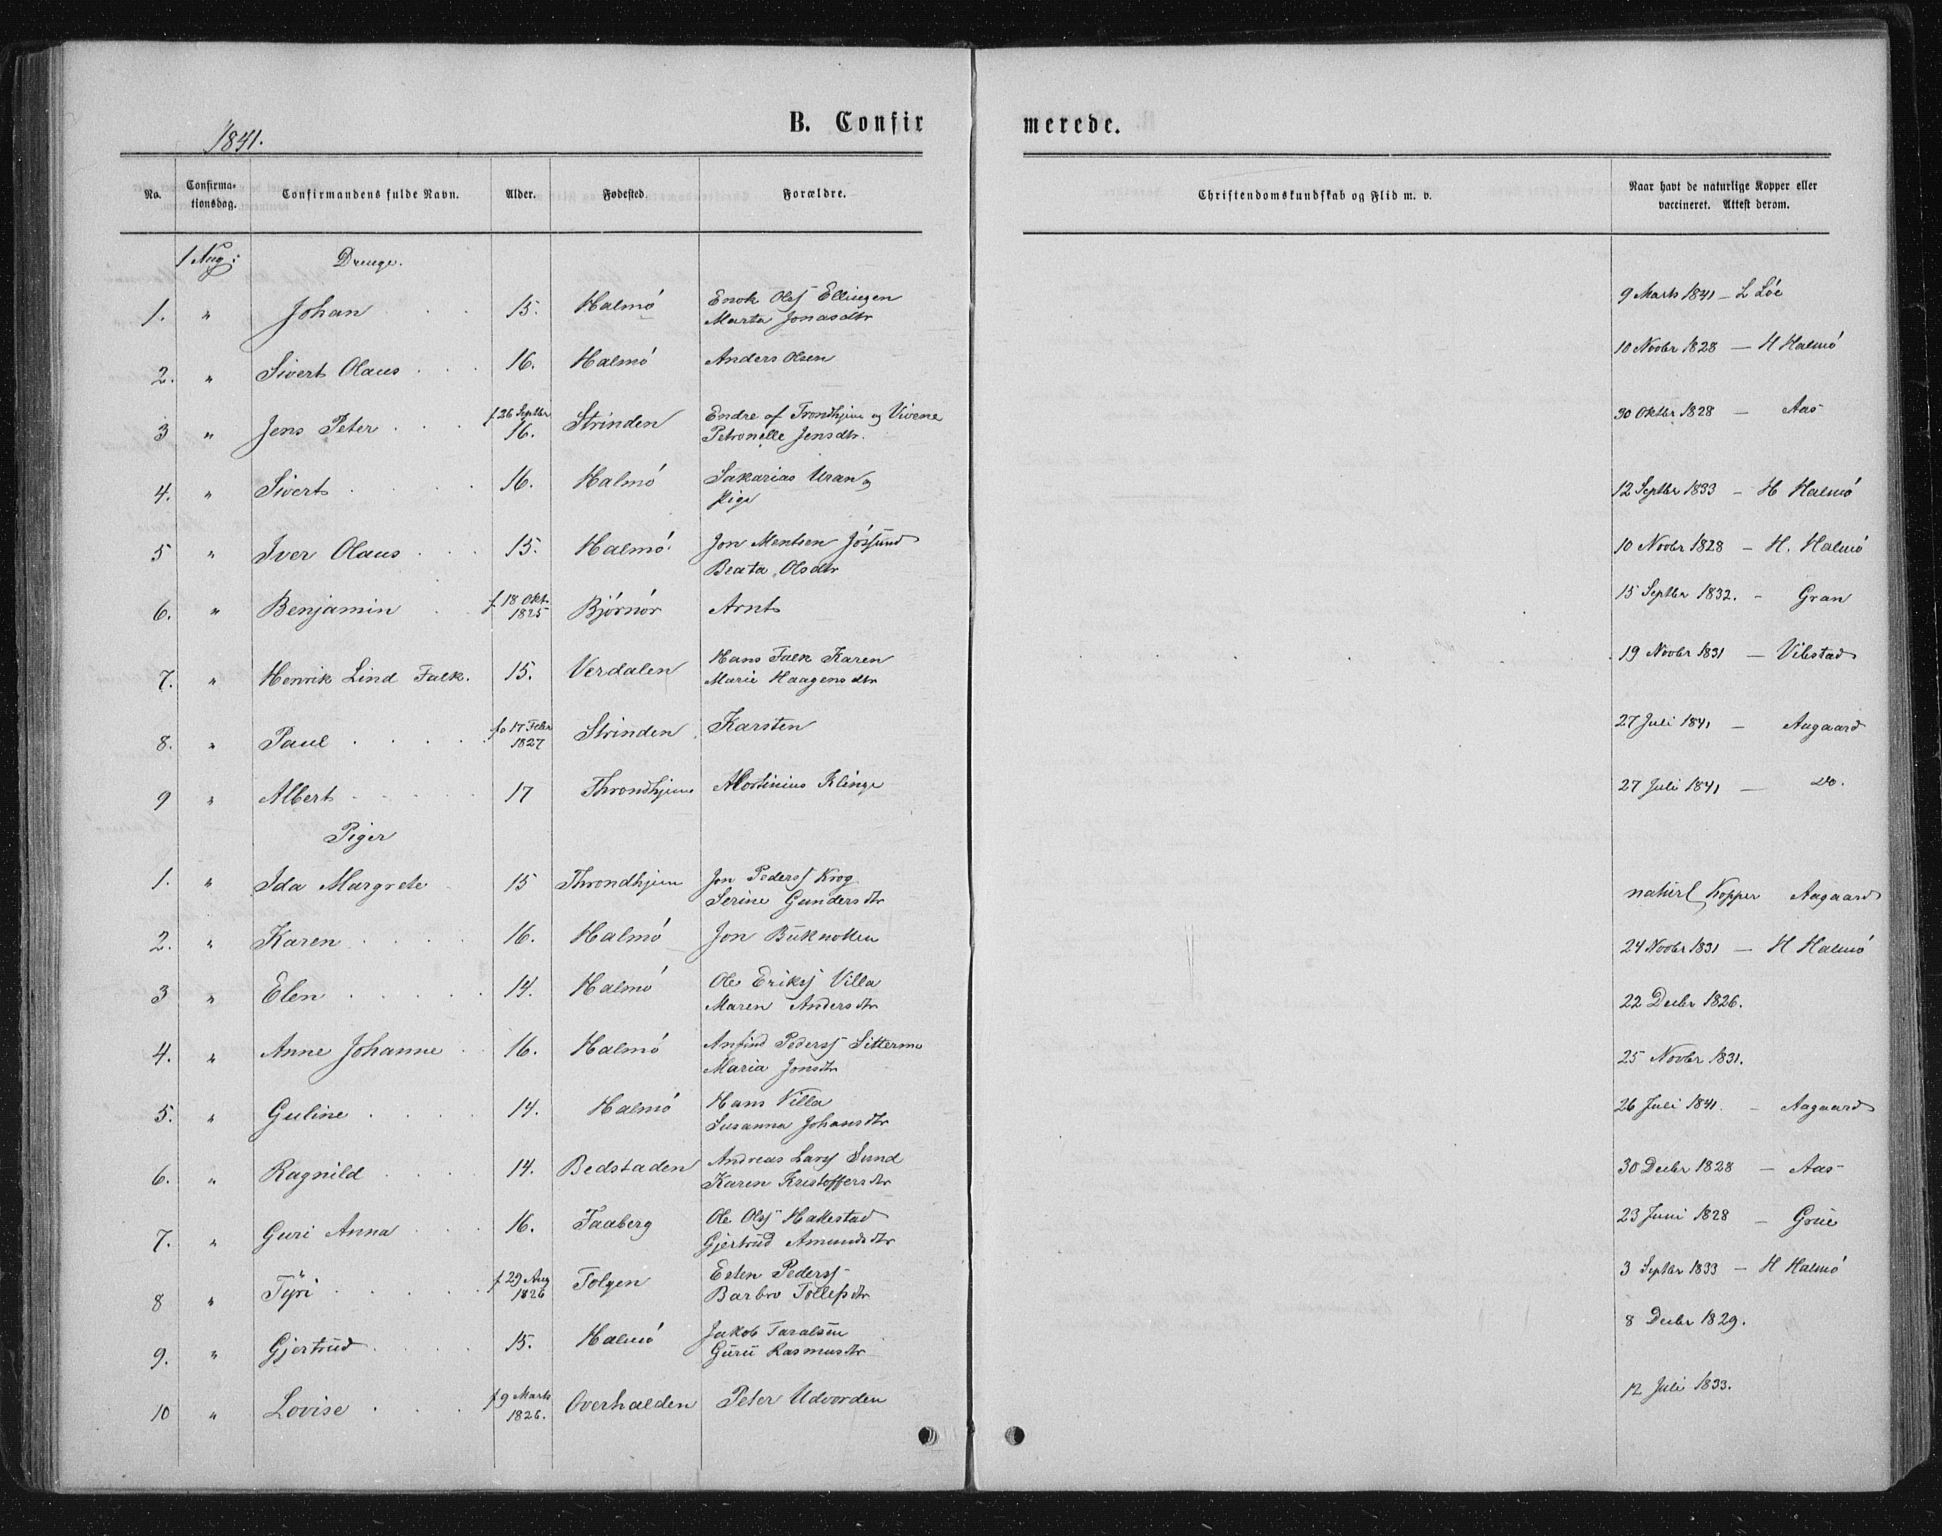 1841.
B. Confirmerede.
No. Confirmationsdag. Confirmandens fulde Navn. Alder. Fødested. Forældre. Christendomskundskab og Flid m. v. Naar havt de naturlige Kopper eller vaccineret. Attest derom.
1 Aug: Drenge.
1. " Johan 15. Halmö Enok Olss Ellingen 9 Marts 1841 – L Löe
Marta Jonasdtr
2. " Sivert Olaus 16. Halmö Anders Olsen 10 Novbr 1828 – H Halmö
3 " Jens Peter f 26 Septbr 16. Strinden Endre af Trondhjem og Vivene 30 Oktbr 1828 – Aas
Petronelle Jensdtr.
4. " Sivert 16. Halmö Sakarias Uran og 12 Septbr 1833 – H Halmö
Pige
5 " Iver Olaus 15. Halmö Jon Mentsen Jössund 10 Novbr 1828 – H. Halmö
Beata Olsdtr
6. " Benjamin f 18 Okt. 1825 Björnör Arnt 15 Septbr 1832. – Gran
7. " Henrik Lind Falk. 15. Verdalen Hans Falk Karen 19 Novbr 1831 – Vibstad
Marie Haagensdtr
8. " Paul fö 17 Febr 1827 Strinden Karsten 27 Juli 1841 – Aagaard
9 " Albert 17 Throndhjem Mortinius Klinge 27 Juli 1841 – Do.
Piger
1. " Ida Margrete 15 Throndhjem Jon Pederss Krog naturl Kopper Aagaard
Serine Gundersdtr
2. " Karen 16. Halmö Jon Buknotten 24 Novbr 1831 – H Halmö
3 " Elen 14. Halmö Ole Erikss Villa 22 Decbr 1826.
Maren Andersdtr
4. " Anne Johanne 16. Halmö Anfind Pederss Sittermo 25 Novbr 1831.
Maria Jonsdtr
5. " Guline 14. Halmö Hans Villa 26 Juli 1841. – Aagaard
Susanna Johansdtr
6. " Ragnild 14. Bedstaden Andreas Larss Sund 30 Decbr 1828 – Aas
Karen Kristoffersdtr
7. " Guri Anna 16. Faaberg Ole Olss Hakestad 23 Juni 1828 – Grue
Gjertrud Amundsdtr
8 " Tyri f 29 Aug 1826 Tolgen Esten Pederss 3 Septbr 1833 – H Halmö
Barbro Tollefsdtr
9. " Gjertrud 15. Halmö Jakob Taralsen 8 Decbr 1829.
Guru Rasmusdtr
10 " Lovise f 9 Marts 1826. Overhalden Peter Udvorden 12 Juli 1833.